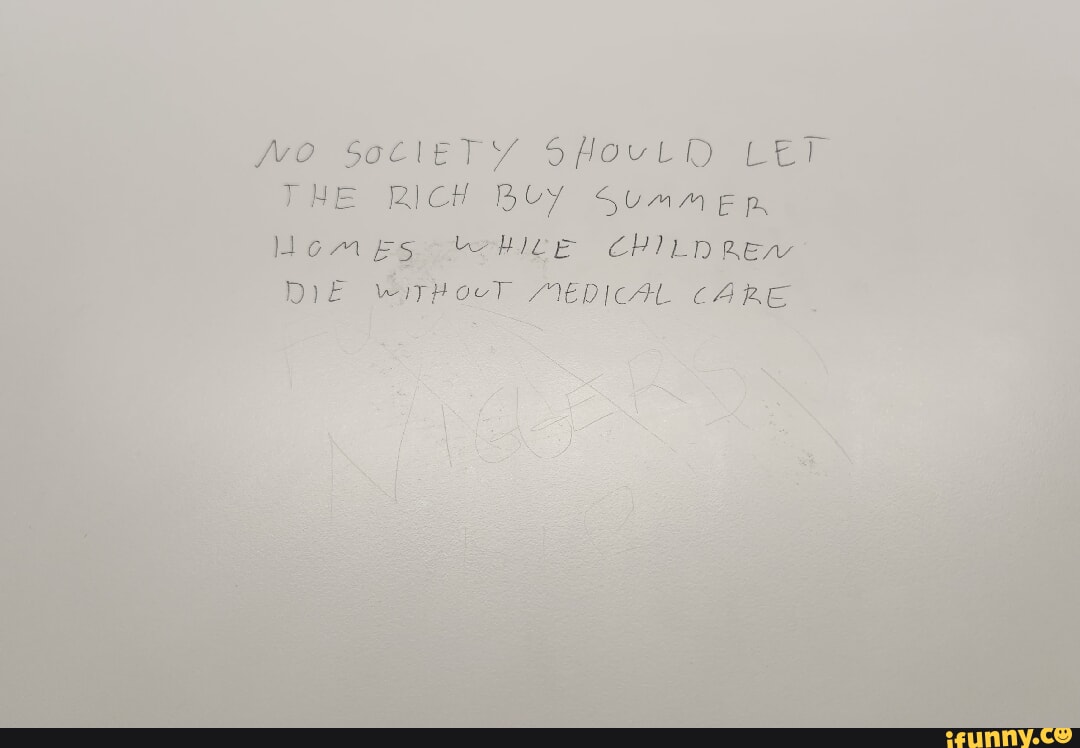 NO SOCIETY SHOULD LET
THE RICH BUY SUMMER
HOMES WHILE CHILDREN
DIE WITHOUT MEDICAL CARE
NIGGERS
ifunny.co